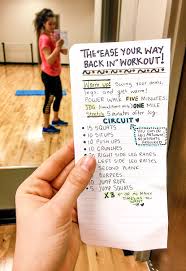 THE "EASE YOUR WAY
BACK IN" WORKOUT!
Warm up! Swing your arms,
legs, and get warm!
POWER WALK FIVE MINUTES.
JOG ONE MILE
Stretch 5 minutes after jog
CIRCUIT
15 SQUATS
10 SITUPS
10 PUSH UPS
10 CRUNCHES
RIGHT SIDE LEG RAISES
LEFT SIDE LEG RAISES
SECOND PLANK
BURPEES
JUMP ROPE
JUMP SQUATS
X3 OR AS MANY
TIMES AS YOU